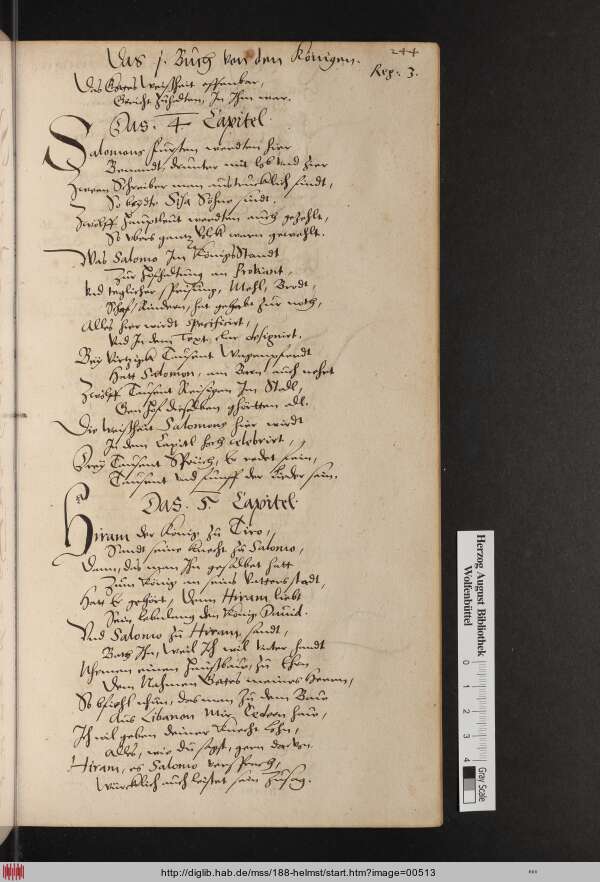 244
Das j. Buch von den Königen.
Reg: 3.
Das Gottes Weißheit offenbar,
Gericht Zuhalten, In Ihm war.
Das. 4 Capitel
Salomons fursten werden hier
Benandt, drunter mit lob vnd Zier
Zween Schreiber man austrucklich findt,
So beyde Sisa Sohne sindt.
Zwölff Hauptleut werden auch gezehlt,
So vbers gantz Volk warn gewehlt.
Was Salomo Im Königs Standt
Zur an Prouiant,
Vnd teglicher Speisung, Mehl, Brodt,
Schaf, Rindern, hat gehabt Zur noth,
Alles hier wirdt specificirt,
Vnd In dem Text clar designirt.
Bey Viertzigk Tausent Wagenpferdt
Hatt Salomon, am auch
Zwölff Tausent Reisigen Im Stall,
Gen hof dieselben ghörten all.
Die Weißheit Salomons hier wirdt
In dem Capitl hoch celebrirt,
Drey Tausent Sprüch, Er redet fein,
Tausent vnd funff der Lieder sein.
Das. 5. Capitel
Hiram der König Zu Tiro,
Sandt seine Knecht Zu Salomo,
Dann, das man Ihn gesalbet hatt
Zum König an seins Vatters stadt,
Hatt Er gehört, Denn Hiram liebt
Sein lebenlang den König Dauid.
Vnd Salomo Zu Hiram sandt,
Bath Ihn, Weil Ich wil vnter handt
Nhemen einen Hausbaw, Zu Ehrn
Dem Nahmen Gottes meines Herren,
So befiehl nhun, das man Zu dem Baw
Aus Libanon mir Cedern haw,
Ich wil geben deiner Knecht Lohn,
Alles, wie du sagst, gern daruon.
Hiram, es Salomo versprach,
Würcklich auch leistet sein Zusag.
Herzog August Bibliothek
Wolfenbüttel
0 1 2 3 4
Gray Scale
http://diglib.hab.de/mss/188-helmst/start.htm?image=00513